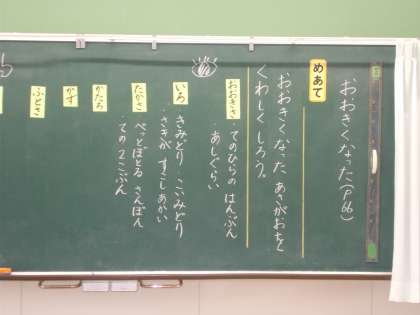 おおきくなった(P66)
めあて
おおきくなった あさがおを
くわしく しろう。
おおきさ
・てのひらの はんぶん
・あしぐらい
いろ
・きみどり・こいみどり
・さきが すこしあかい
たかさ
・ぺっとぼとる さんぼん
・ての 2こぶん
かたち
かず
ふとさ